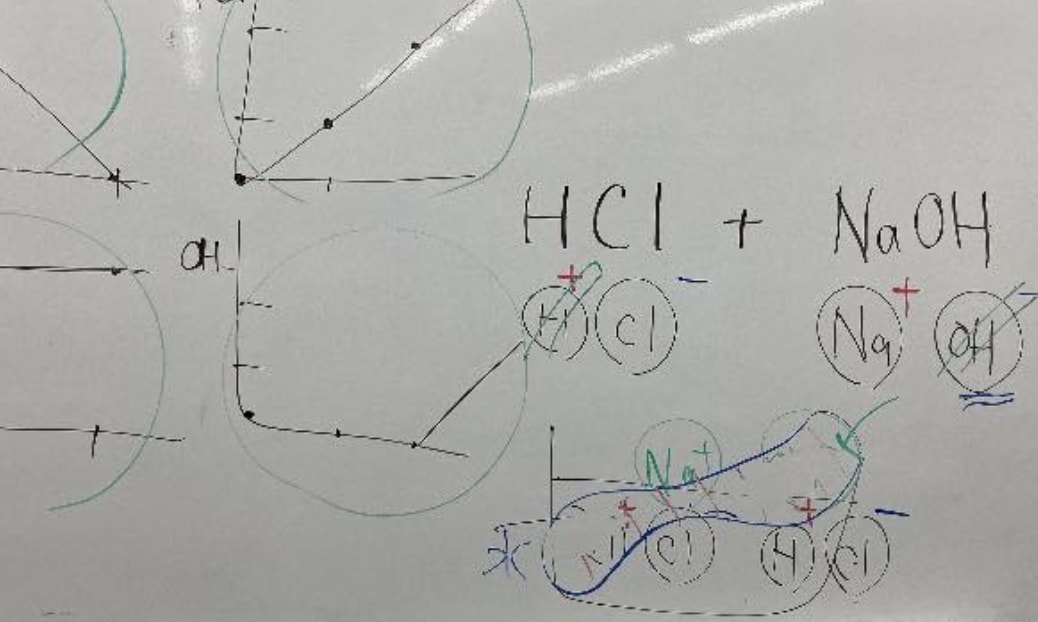 HCl + NaOH
OH
+ - + -
H Cl Na OH
Na+
+ + -
Cl H Cl